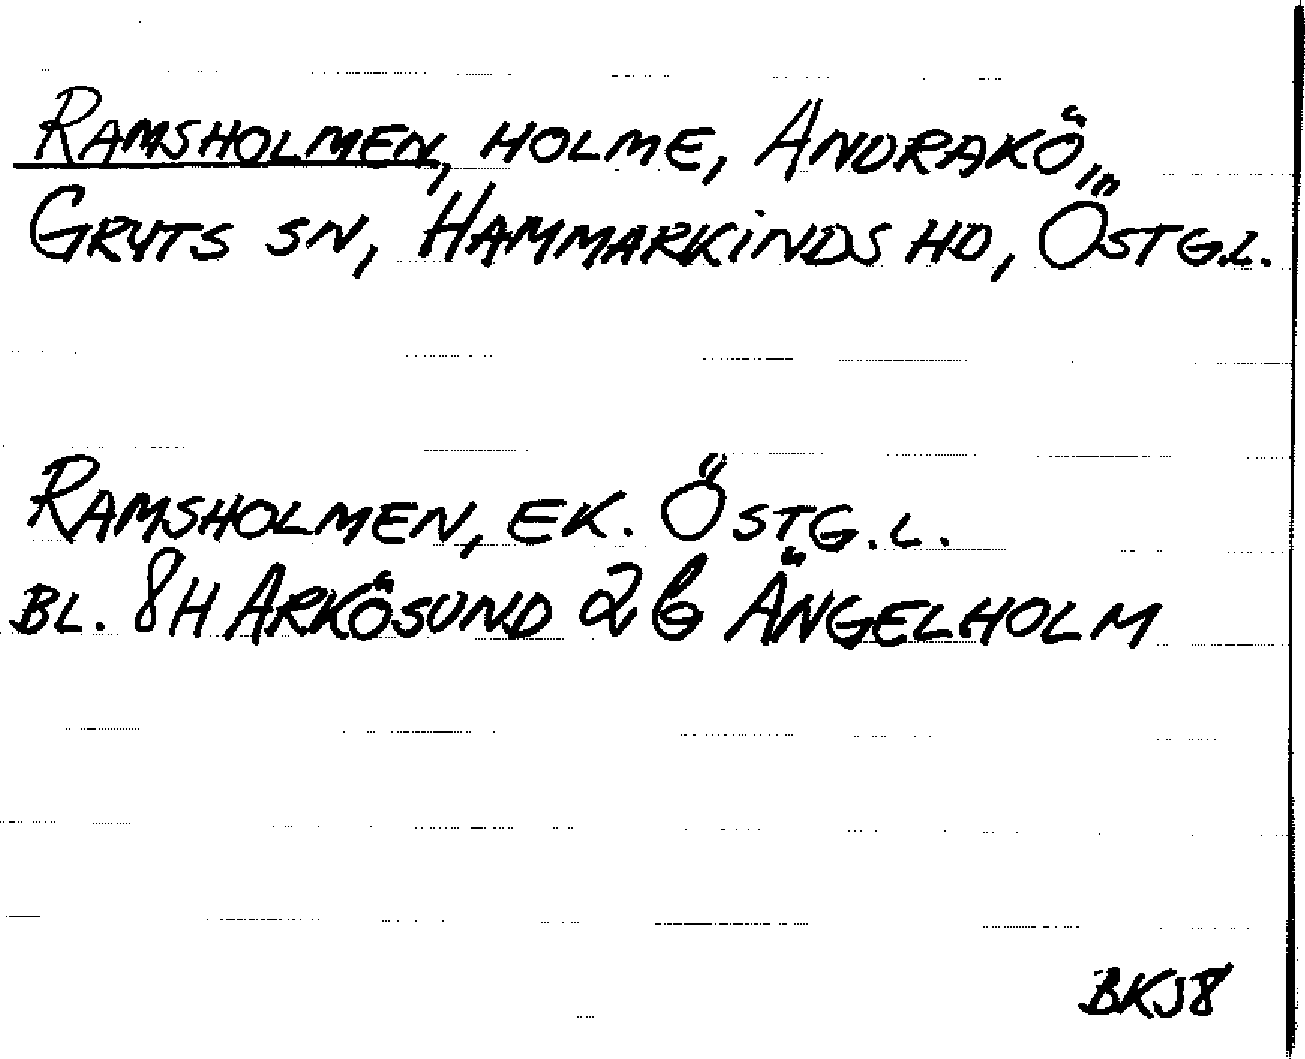 RAMSHOLMEN, HOLME, ANDRAKÖ,
GRYTS SN, HAMMARKINDS HD, ÖSTG.L.
RAMSHOLMEN, EK. ÖSTG.L.
BL. 8H ARKÖSUND 2b ÄNGELHOLM
BKJ8